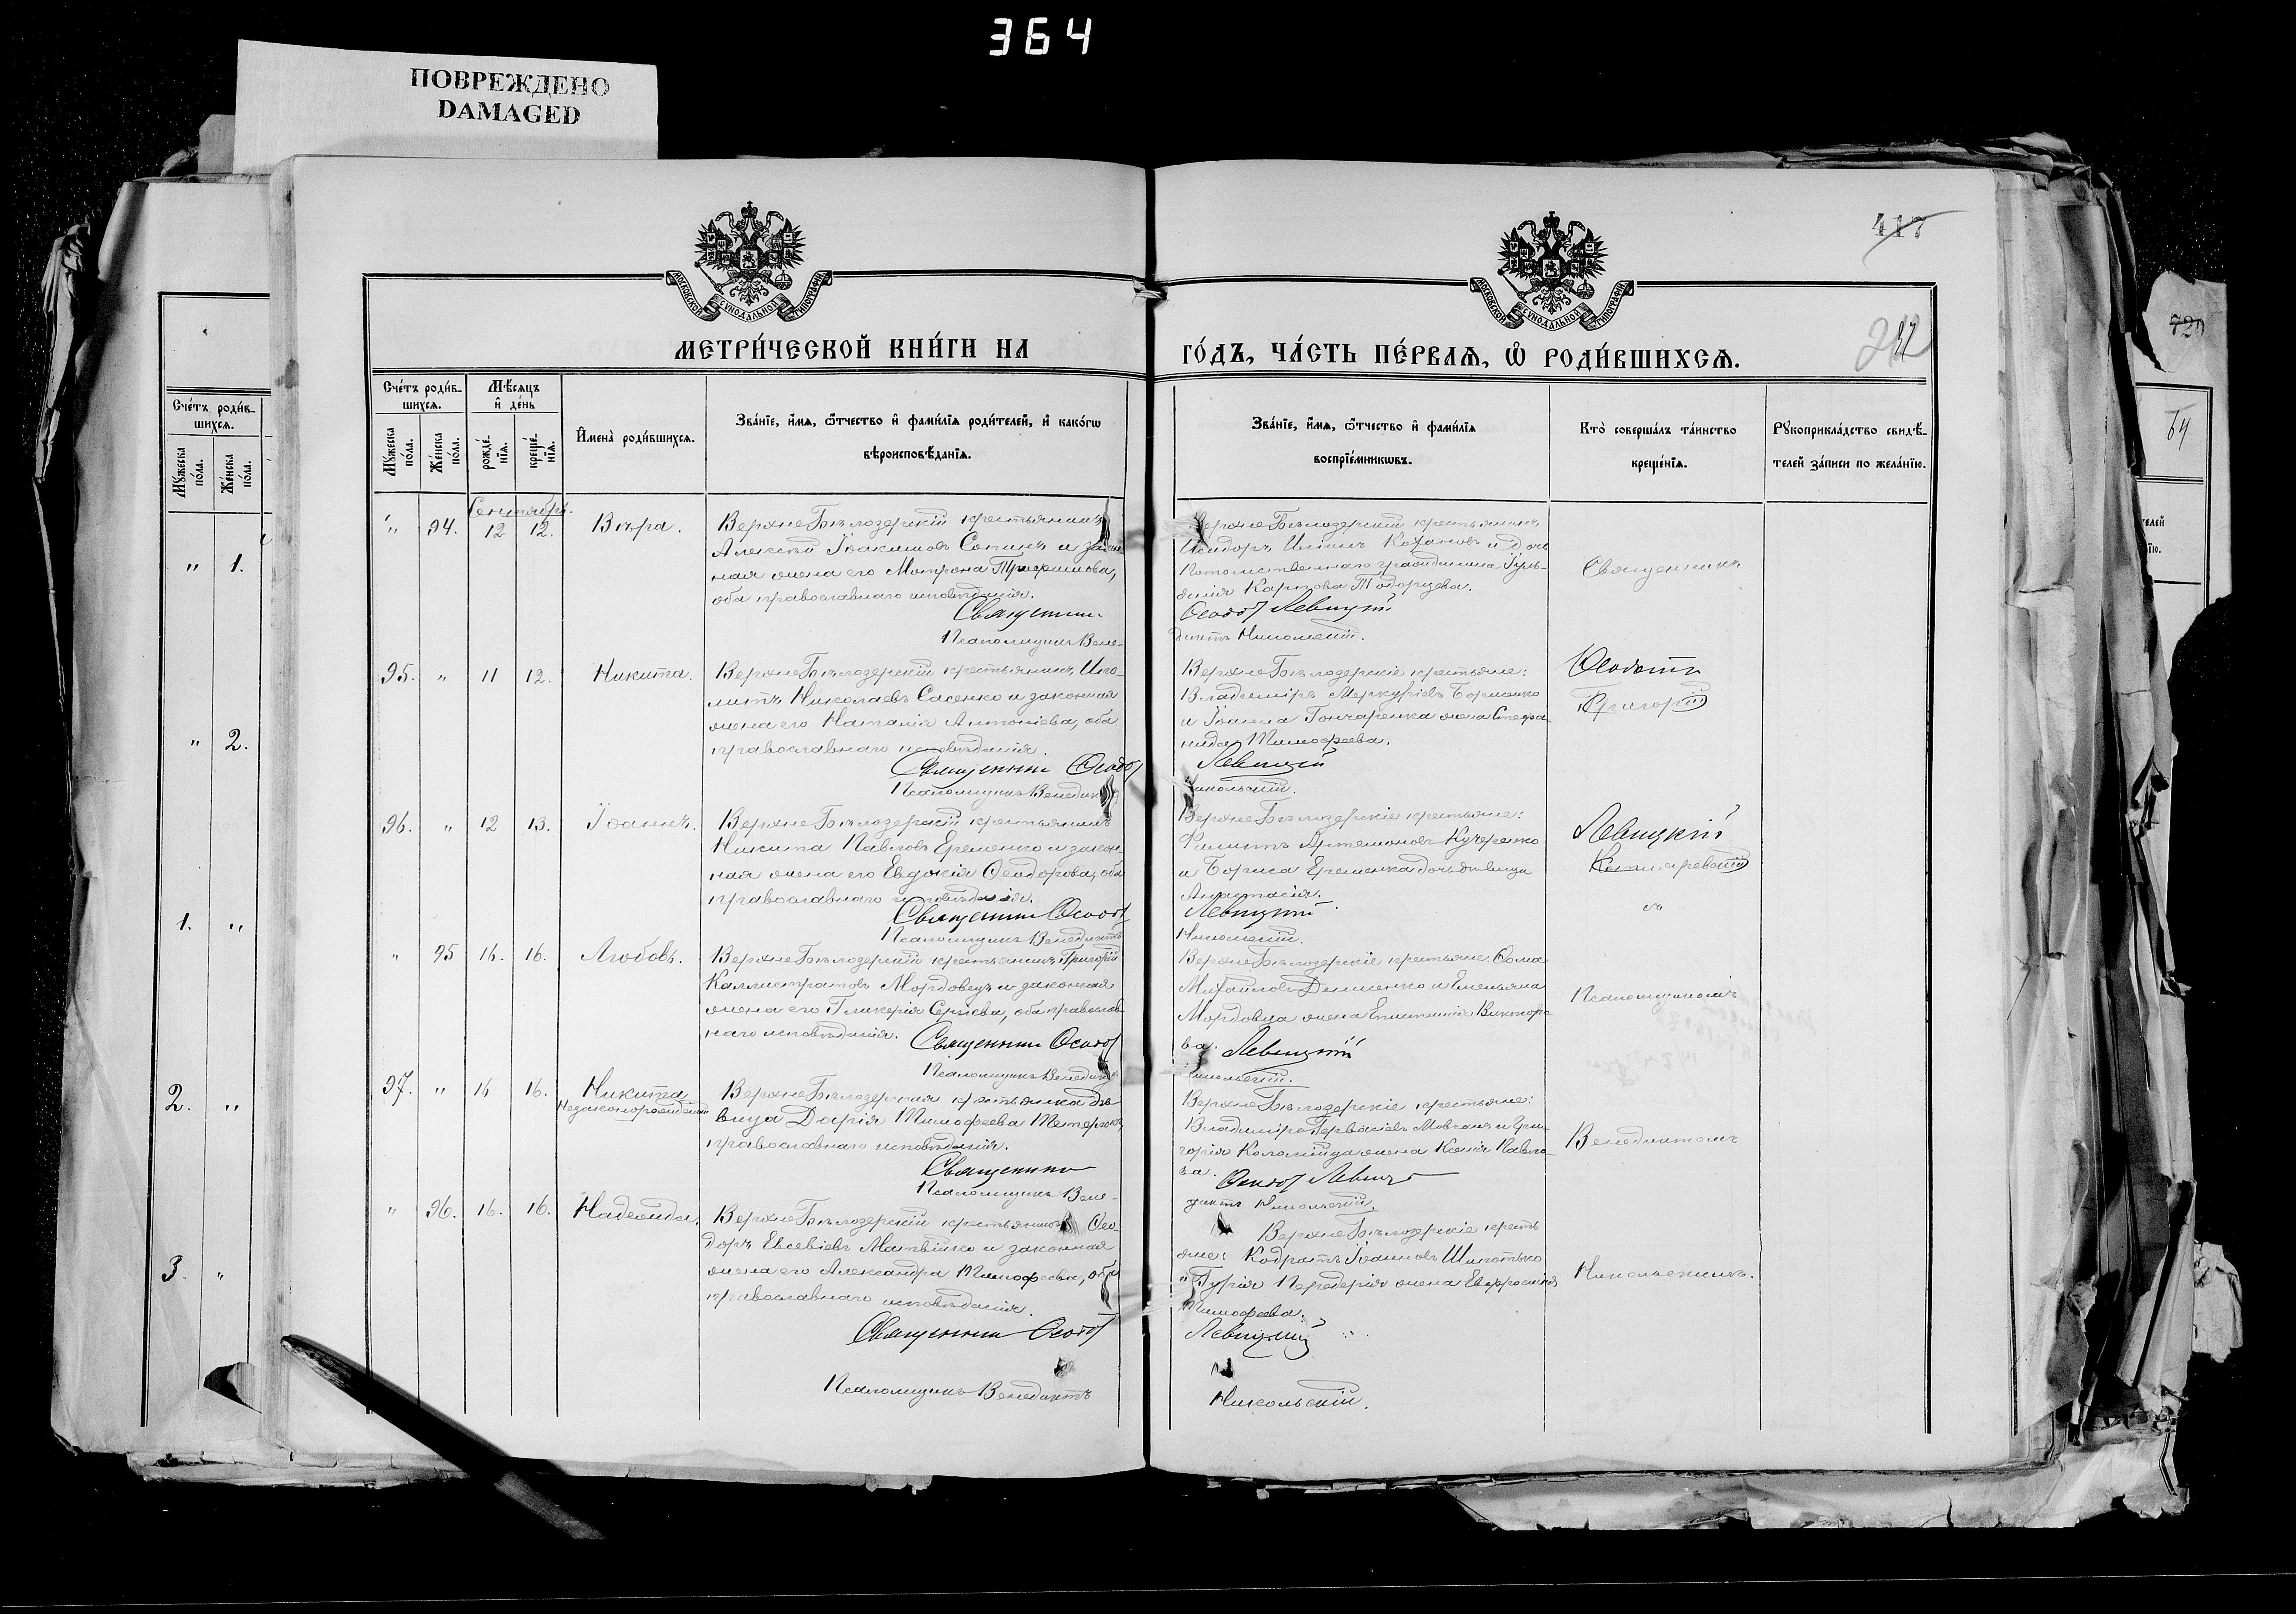 364
ПОВРЕЖДЕНО
DAMAGED
417
МОСКОВСКОЙ СѴНОДАЛЬНОЙ ТИПОГРАФІИ
МОСКОВСКОЙ СѴНОДАЛЬНОЙ ТИПОГРАФІИ
МЕТРИ́ЧЕСКОЙ КНИ́ГИ НА
ГО́ДЪ, ЧА́СТЬ ПЕ́РВАѦ, Ѡ҆ РОДИ́ВШИХСѦ.
Сче́тъ роди́в-
шихсѧ.
Мꙋ́жеска по́ла.
Же́нска по́ла.
Мѣ́сѧцъ
и҆ де́нь
рожде́нїѧ.
креще́нїѧ.
И҆мена̀ роди́вшихсѧ.
Зва́нїе, и҆́мѧ, ѻ҆́тчество и҆ фами́лїѧ роди́телей, и҆ како́гѡ
вѣроисповѣ́данїѧ.
Зва́нїе, и҆́мѧ, ѻ҆́тчество и҆ фами́лїѧ
воспрїе́мникѡвъ.
Кто̀ соверша́лъ та́инство
креще́нїѧ.
Рꙋкоприкла́дство свидѣ́-
телей за́писи по жела́нїю.
Сентябрь.
" 94. 12 12. Вѣра.
ВерхнеБѣлозерскій крестьянинъ
Алексѣй Іоакимовъ Сопинъ и закон
ная жена его Матрона Трифимова,
оба православнаго исповѣданія.
Священникъ
Псаломщикъ Вене-
ВерхнеБѣлозерскій крестьянинъ
Исидоръ Кохановъ и дочь
Потомственнаго гражданина
Карпова
Ѳеодот Левицкій
диктъ Никольскій.
Священникъ
95. " 11 12. Никита.
ВерхнеБѣлозерскій крестьянинъ Ипо-
литъ Николаевъ Сасенко и законная
жена его Наталія Антоніева, оба
православнаго исповѣданія.
Священникъ Ѳеодот
Псаломщикъ Венедиктъ
ВерхнеБѣлозерскіе крестьяне:
Владиміръ Меркуріевъ Борженко
и Іоанна Гончаренка жена Стефа-
нида Тимофеева.
Левицкій
Никольскій.
Ѳеодотъ
Григорій
96. " 12 13. Іоаннъ.
ВерхнеБѣлозерскій крестьянинъ
Никита Павловъ Еременко и закон-
ная жена его Евдокія Ѳеодорова, оба
православнаго исповѣданія.
Священникъ Ѳеодот
Псаломщикъ Венедиктъ
ВерхнеБѣлозерскіе крестьяне:
Филиппъ Артемоновъ Кучеренко
и Бориса Еременка дочь дѣвица
Анастасія.
Левицкій
Никольскій.
Левицкій
съ
" 95 16. 16. Любовь.
ВерхнеБѣлозерскій крестьянинъ Григорій
Каллистратовъ Мордовецъ и законная
жена его Гликерія Сергіева, оба православ
наго исповѣданія. Священникъ Ѳеодот
Псаломщикъ Венедиктъ
ВерхнеБѣлозерскіе крестьяне: Ѳома
Михайловъ Демченко и Емельяна
Мордовца жена Викторо
ва. Левицкій
Никольскій.
Псаломщикомъ
97. " 16 16. Никита
Незаконорожденный
ВерхнеБѣлозерская крестьянка дѣ
вица Дарія Тимофеева
православнаго исповѣданія.
Священникъ
Псаломщикъ Вене-
ВерхнеБѣлозерскіе крестьяне:
Владиміръ Гервасіевъ Мовчанъ и Гри-
горія Коломійца жена Ксенія Павло-
ва. Ѳеодот Левицкій
диктъ Никольскій.
Венедиктомъ
" 96. 16. 16. Надежда.
ВерхнеБѣлозерскій крестьянинъ Ѳео-
доръ Евсевіевъ Матвійко и законная
жена его Александра Тимофеева, оба
православнаго исповѣданія.
Священникъ Ѳеодот
Псаломщикъ Венедиктъ
ВерхнеБѣлозерскіе кресть
яне: Кодратъ Іоанновъ
и Гурія жена Евфросинія
Тимофеева.
Левицкій
Никольскій.
Никольскимъ.
Сче́тъ роди́в-
шихсѧ.
Мꙋ́жеска по́ла.
Же́нска по́ла.
" 1.
" 2.
1. "
2. "
3. "
720
64